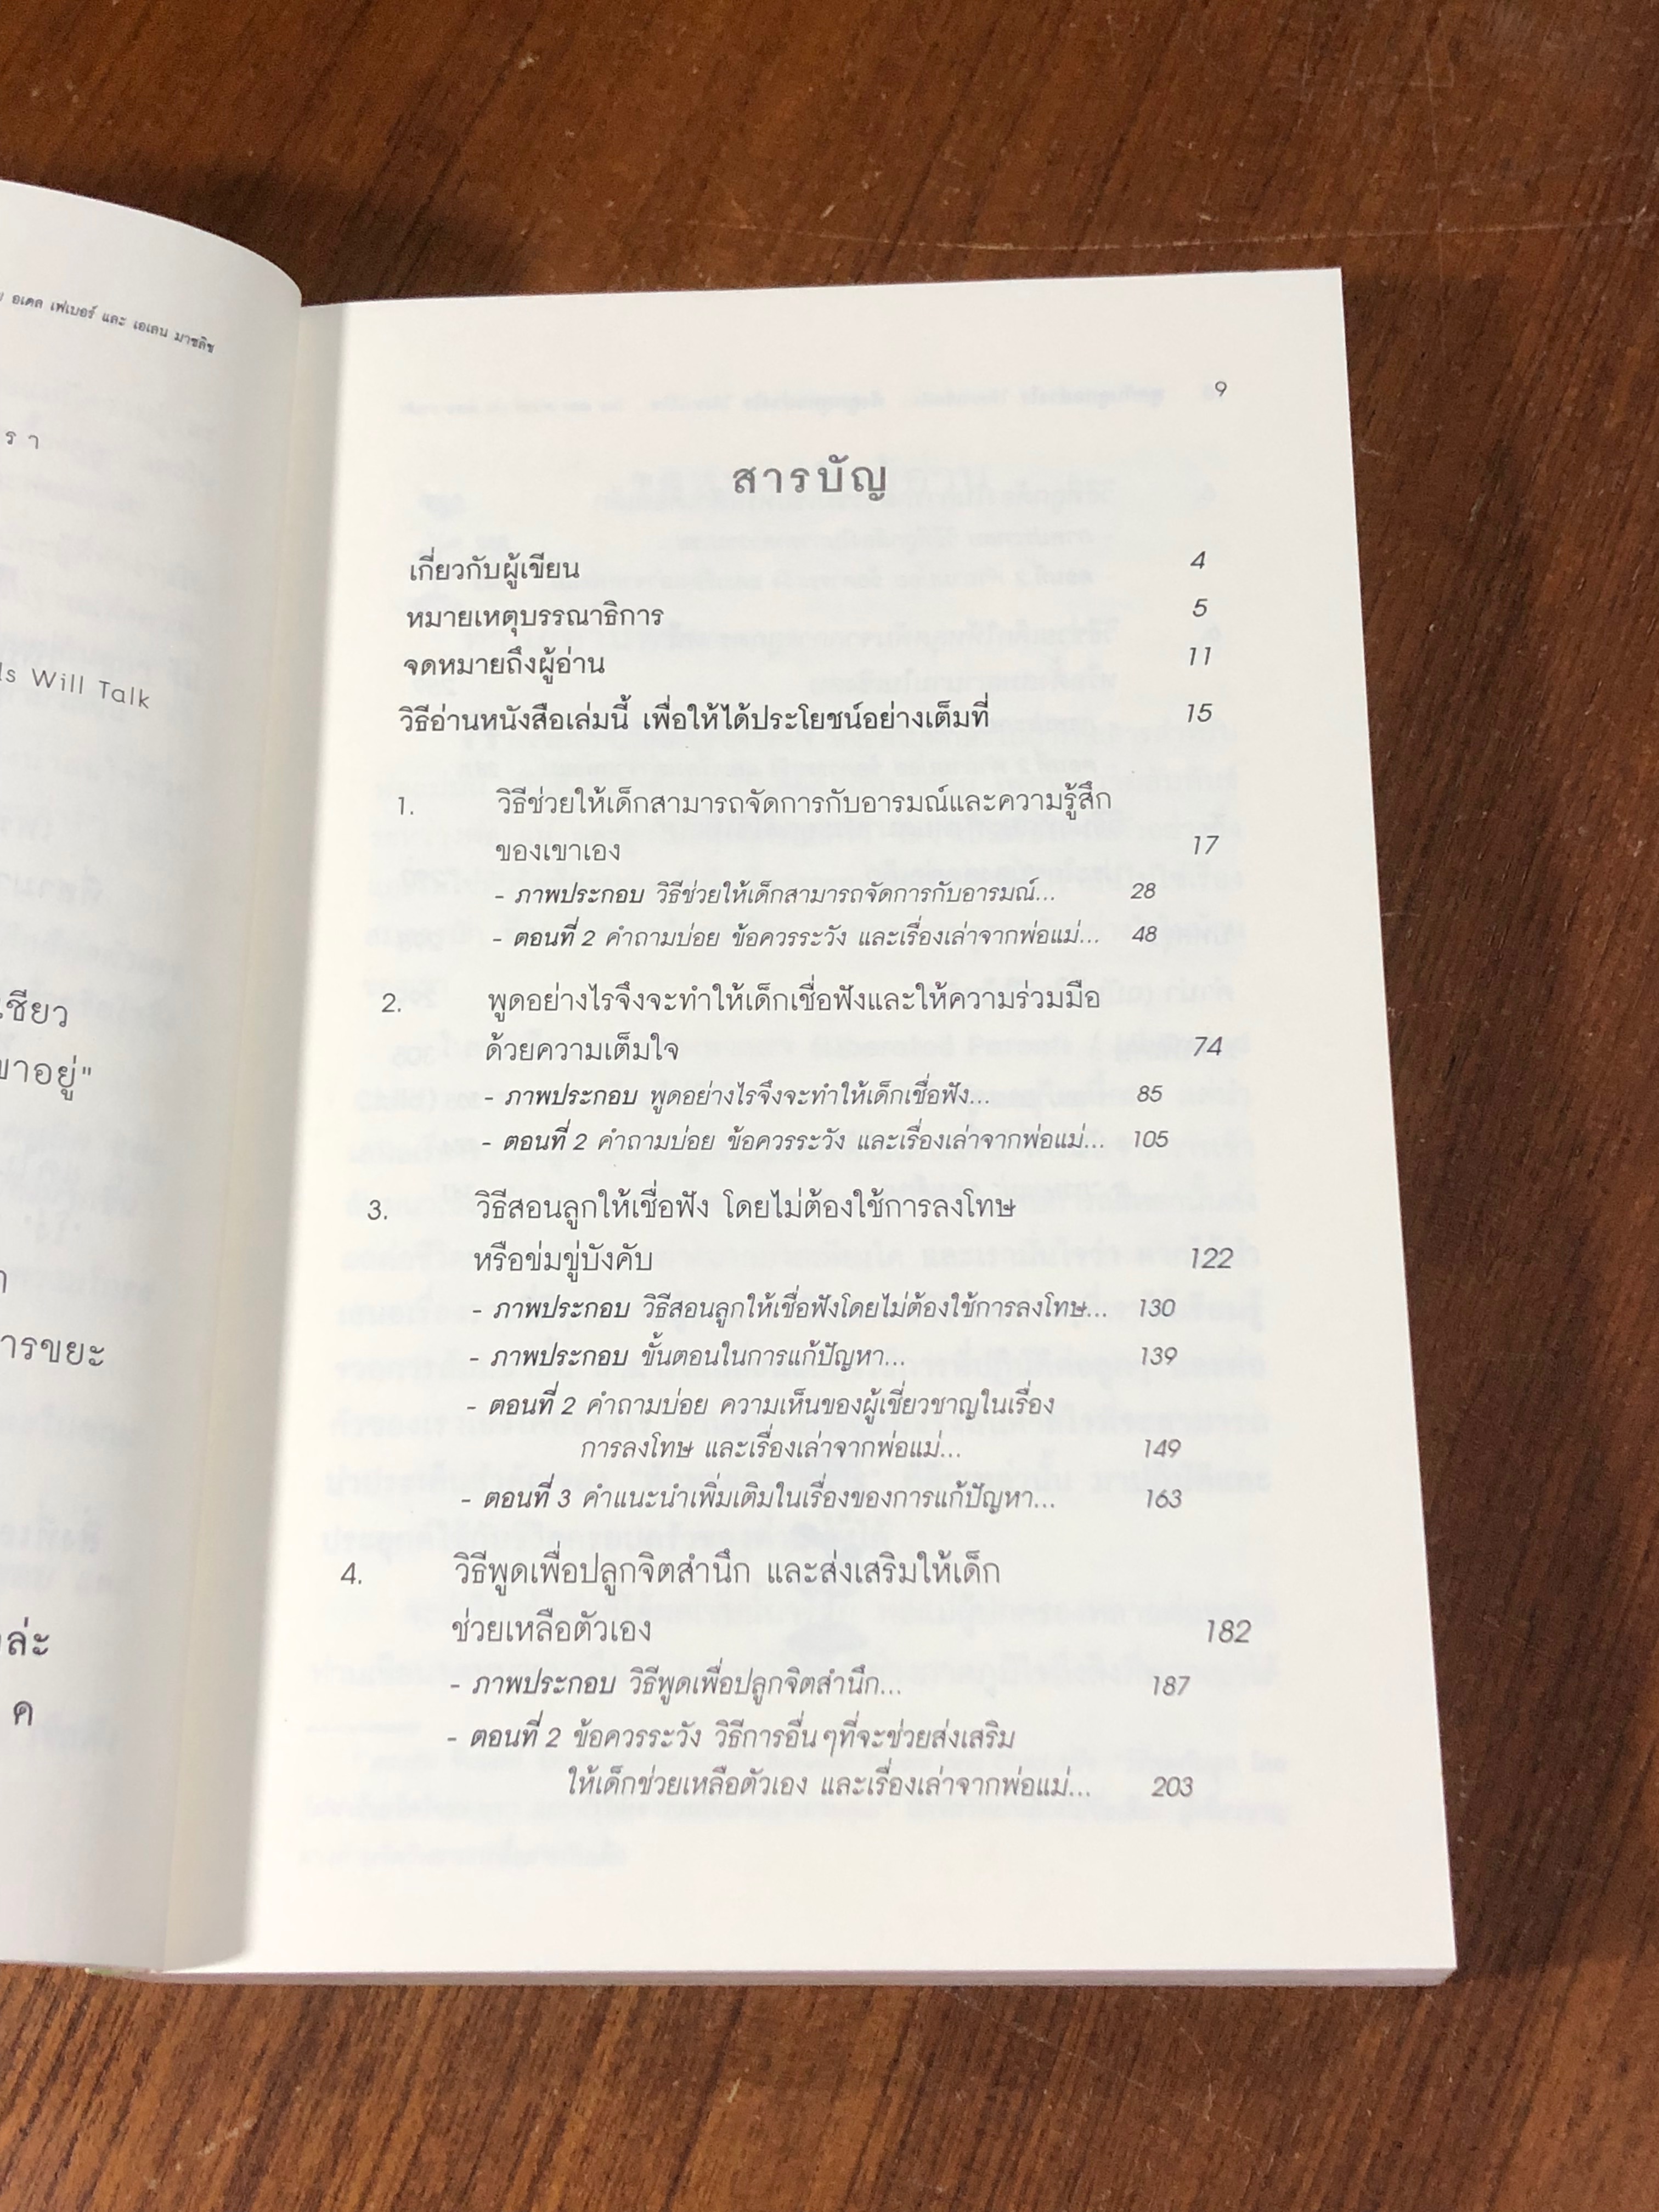 อเดล เฟเบอร์ และ เอเลน มาซลิช
รา
Will Talk
เชียว
อยู่"
ารขยะ
ล่ะ
ค
9
สารบัญ
เกี่ยวกับผู้เขียน 4
หมายเหตุบรรณาธิการ 5
จดหมายถึงผู้อ่าน 11
วิธีอ่านหนังสือเล่มนี้ เพื่อให้ได้ประโยชน์อย่างเต็มที่ 15
1. วิธีช่วยให้เด็กสามารถจัดการกับอารมณ์และความรู้สึก
ของเขาเอง 17
- ภาพประกอบ วิธีช่วยให้เด็กสามารถจัดการกับอารมณ์... 28
- ตอนที่ 2 คำถามบ่อย ข้อควรระวัง และเรื่องเล่าจากพ่อแม่... 48
2. พูดอย่างไรจึงจะทำให้เด็กเชื่อฟังและให้ความร่วมมือ
ด้วยความเต็มใจ 74
- ภาพประกอบ พูดอย่างไรจึงจะทำให้เด็กเชื่อฟัง... 85
- ตอนที่ 2 คำถามบ่อย ข้อควรระวัง และเรื่องเล่าจากพ่อแม่... 105
3. วิธีสอนลูกให้เชื่อฟัง โดยไม่ต้องใช้การลงโทษ
หรือข่มขู่บังคับ 122
- ภาพประกอบ วิธีสอนลูกให้เชื่อฟังโดยไม่ต้องใช้การลงโทษ... 130
- ภาพประกอบ ขั้นตอนในการแก้ปัญหา... 139
- ตอนที่ 2 คำถามบ่อย ความเห็นของผู้เชี่ยวชาญในเรื่อง
การลงโทษ และเรื่องเล่าจากพ่อแม่... 149
- ตอนที่ 3 คำแนะนำเพิ่มเติมในเรื่องของการแก้ปัญหา... 163
4. วิธีพูดเพื่อปลูกจิตสำนึก และส่งเสริมให้เด็ก
ช่วยเหลือตัวเอง 182
- ภาพประกอบ วิธีพูดเพื่อปลูกจิตสำนึก... 187
- ตอนที่ 2 ข้อควรระวัง วิธีการอื่นๆที่จะช่วยส่งเสริม
ให้เด็กช่วยเหลือตัวเอง และเรื่องเล่าจากพ่อแม่... 203